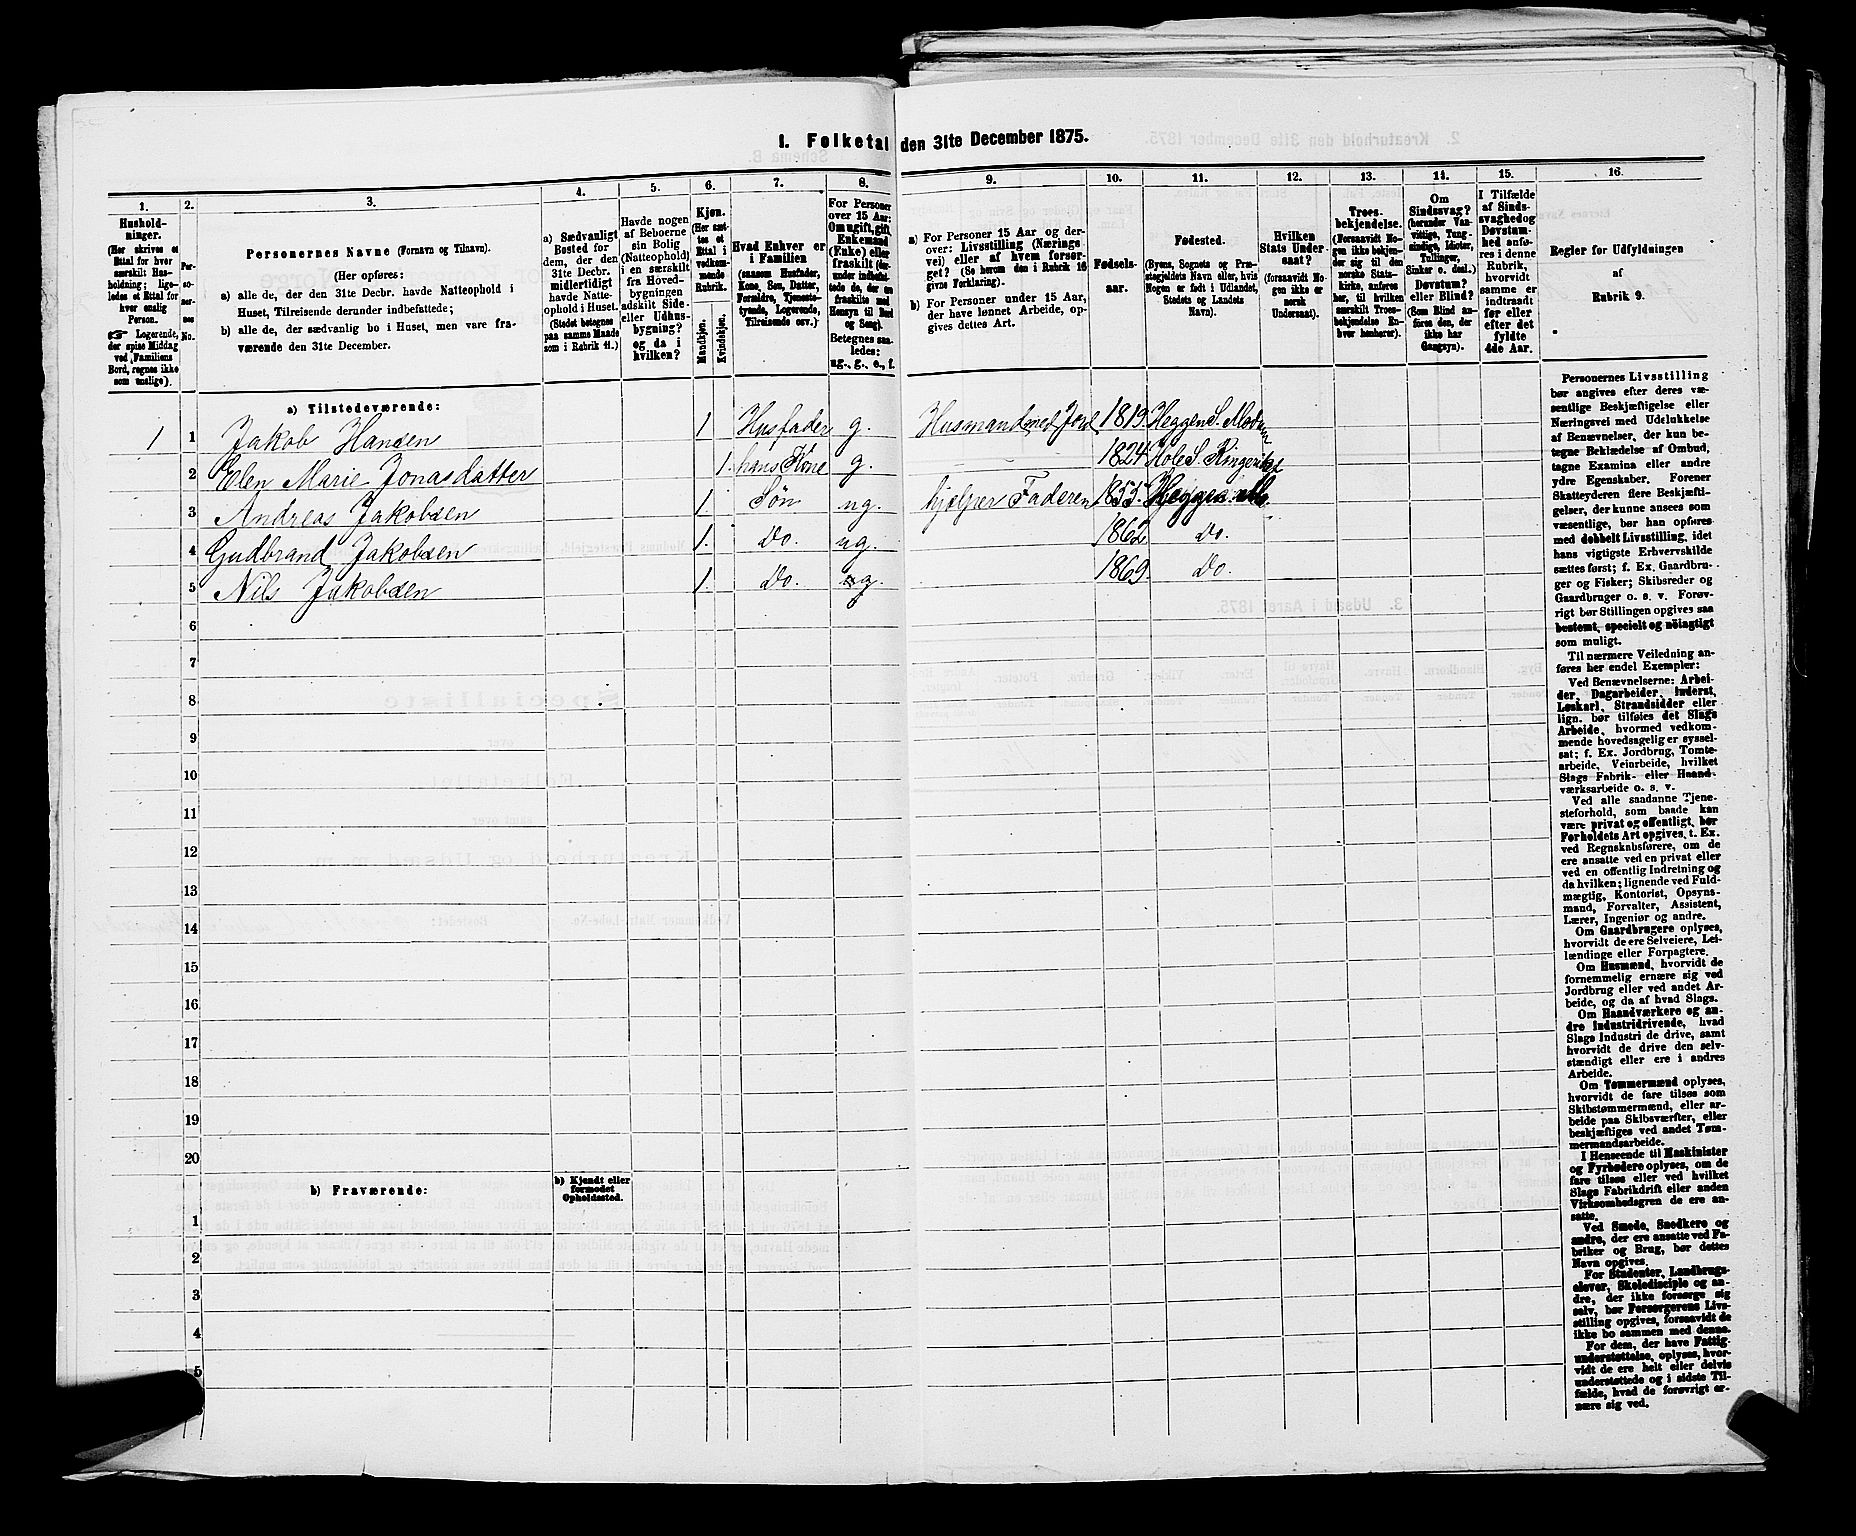 1. Folketal den 31te December 1875.
1. 2. 3. 4. 5. 6. 7. 8. 9. 10. 11. 12. 13. 14. 15. 16.
Hushold-
ninger.
(Her skrives et
Ettal for hver
særskilt Hus-
holdning; lige-
ledes et Ettal for
hver enslig
Person.
☞ Logerende,
der spise Middag
ved Familiens
Bord, regnes ikke
som enslige).
Per-
so-
ner-
nes
No.
Personernes Navne (Fornavn og Tilnavn).
(Her opføres:
a) alle de, der den 31te Decbr. havde Natteophold i
Huset, Tilreisende derunder indbefattede;
b) alle de, der sædvanlig bo i Huset, men vare fra-
værende den 31te December.
a) Sædvanligt
Bosted for
dem, der den
31te Decbr.
midlertidigt
havde Natte-
ophold i Huset.
(Stedet betegnes
paa samme Maade
som i Rubrik 11.)
Havde nogen
af Beboerne
sin Bolig
(Natteophold)
i en særskilt
fra Hoved-
bygningen
adskilt Side-
eller Udhus-
bygning?
og da i
hvilken?
Kjøn.
(Her sæt-
tes et
Ettal i
vedkom-
mende
Rubrik.
Mandkjøn.
Kvindekjøn.
Hvad Enhver er
i Familien
(saasom Husfader,
Kone, Søn, Datter,
Forældre, Tjeneste-
tyende, Logerende,
Tilreisende osv.)
For Personer
over 15 Aar:
Om ugift, gift,
Enkemand
(Enke) eller
fraskilt (der-
under indbefat-
tede de, der ere
fraskilte med
Hensyn til Bord
og Seng).
Betegnes saa-
ledes:
ug., g., e., f.
a) For Personer 15 Aar og der-
over: Livsstilling (Nærings-
vei) eller af hvem forsør-
get? (Se herom den i Rubrik 16
givne Forklaring).
b) For Personer under 15 Aar,
der have lønnet Arbeide, op-
gives dettes Art.
Fødsels-
aar.
Fødested.
(Byens, Sognets og Præ-
stegjeldets Navn eller, hvis
Nogen er født i Udlandet,
Stedets og Landets
Navn).
Hvilken
Stats Under-
saat?
(forsaavidt No-
gen ikke er
norsk
Undersaat).
Troes-
bekjendelse.
(Forsaavidt No-
gen ikke bekjen-
der sig til den
norske Stats-
kirke, anføres
her, til hvilken
særskilt Troes-
bekjendelse En-
hver henhører).
Om
Sindssvag?
(herunder Van-
vittige, Tung-
sindige, Idioter,
Tullinger,
Sinker o. desl.)
Døvstum?
eller Blind?
(Som Blind an-
føres den, der
ikke har
Gangsyn).
I Tilfælde
af Sinds-
svaghed og
Døvstum-
hed anfø-
res i denne
Rubrik,
hvorvidt
samme er
indtraadt
før eller
efter det
fyldte
4de Aar.
Regler for Udfyldningen
af
Rubrik 9.
a) Tilstedeværende:
1 1 Jakob Hansen 1 Husfader g. Husmand med Jord 1819. Heggen S. Modum
2 Elen Marie Jonasdatter 1. hans Kone g. 1824 Hole S. Ringerike
3 Andreas Jakobsen 1. Søn ug. hjelper Faderen 1855. Heggen
4 Gudbrand Jakobsen 1. Do. ug. 1862 Do.
5 Nils Jakobsen 1. Do. ug. 1869. Do.
6
7
8
9
10
11
12
13
14
15
16
17
18
19
20
b) Fraværende:
b) Kjendt eller
formodet
Opholdssted.
1
2
3
4
5
Personernes Livsstilling
bør angives efter deres væ-
sentlige Beskjæftigelse eller
Næringsvei med Udelukkelse
af Benævnelser, der kun be-
tegne Beklædelse af Ombud,
tagne Examina eller andre
ydre Egenskaber. Forener
Skatteyderen flere Beskjæfti-
gelser, der kunne ansees som
væsentlige, bør han opføres
med dobbelt Livsstilling, idet
hans vigtigste Erhvervskilde
sættes først; f. Ex. Gaardbru-
ger og Fisker; Skibsreder og
Gaardbruger o. s. v. Forøv-
rigt bør Stillingen opgives saa
bestemt, specielt og nöiagtigt
som muligt.
Til nærmere Veiledning an-
føres her endel Exempler:
Ved Benævnelserne: Arbei-
der, Dagarbeider, Inderst,
Løskarl, Strandsidder eller
lign. bør tilføies det Slags
Arbeide, hvormed vedkom-
mende hovedsagelig er syssel-
sat; f. Ex. Jordbrug, Tomte-
arbeide, Veiarbeide, hvilket
Slags Fabrik- eller Haand-
værksarbeide o. s. v.
Ved alle saadanne Tjene-
steforhold, som baade kan
være privat og offentligt, bør
Forholdets Art opgives, t. Ex.
ved Regnskabsførere, om de
ere ansatte ved en privat eller
ved en offentlig Indretning og
da hvilken; lignende ved Fuld-
mægtig, Kontorist, Opsyns-
mand, Forvalter, Assistent,
Lærer, Ingeniør og andre.
Om Gaardbrugere oplyses,
hvorvidt de ere Selveiere, Lei-
lændinge eller Forpagtere.
Om Husmænd, hvorvidt de
fornemmelig ernære sig ved
Jordbrug eller ved andet Ar-
beide, og da af hvad Slags.
Om Haandværkere og an-
dre Industridrivende, hvad
Slags Industri de drive, samt
hvorvidt de drive den selv-
stændigt eller ere i andres
Arbeide.
Om Tømmermænd oplyses,
hvorvidt de fare tilsøs som
Skibstømmermænd, eller ar-
beide paa Skibsværfter, eller
beskjæftiges ved andet Tøm-
mermandsarbeide.
I Henseende til Maskinister
og Fyrbødere oplyses, om de
fare tilsøs eller ved hvilket
Slags Fabrikdrift eller anden
Virksomhedsgren de ere an-
satte.
Ved Smede, Snedkere og
andre, der ere ansatte ved Fa-
briker og Brug, bør dettes
Navn opgives.
For Studenter, Landbrugs-
elever, Skoledisciple og an-
dre, der ikke forsørge sig
selv, bør Forsørgerens Livs-
stilling opgives, forsaavidt de
ikke bo sammen med denne.
For dem, der have Fattig-
understøttelse, oplyses, hvor-
vidt de ere helt eller delvis
understøttede og i sidste Til-
fælde, hvad de forøvrigt er-
nære sig ved.